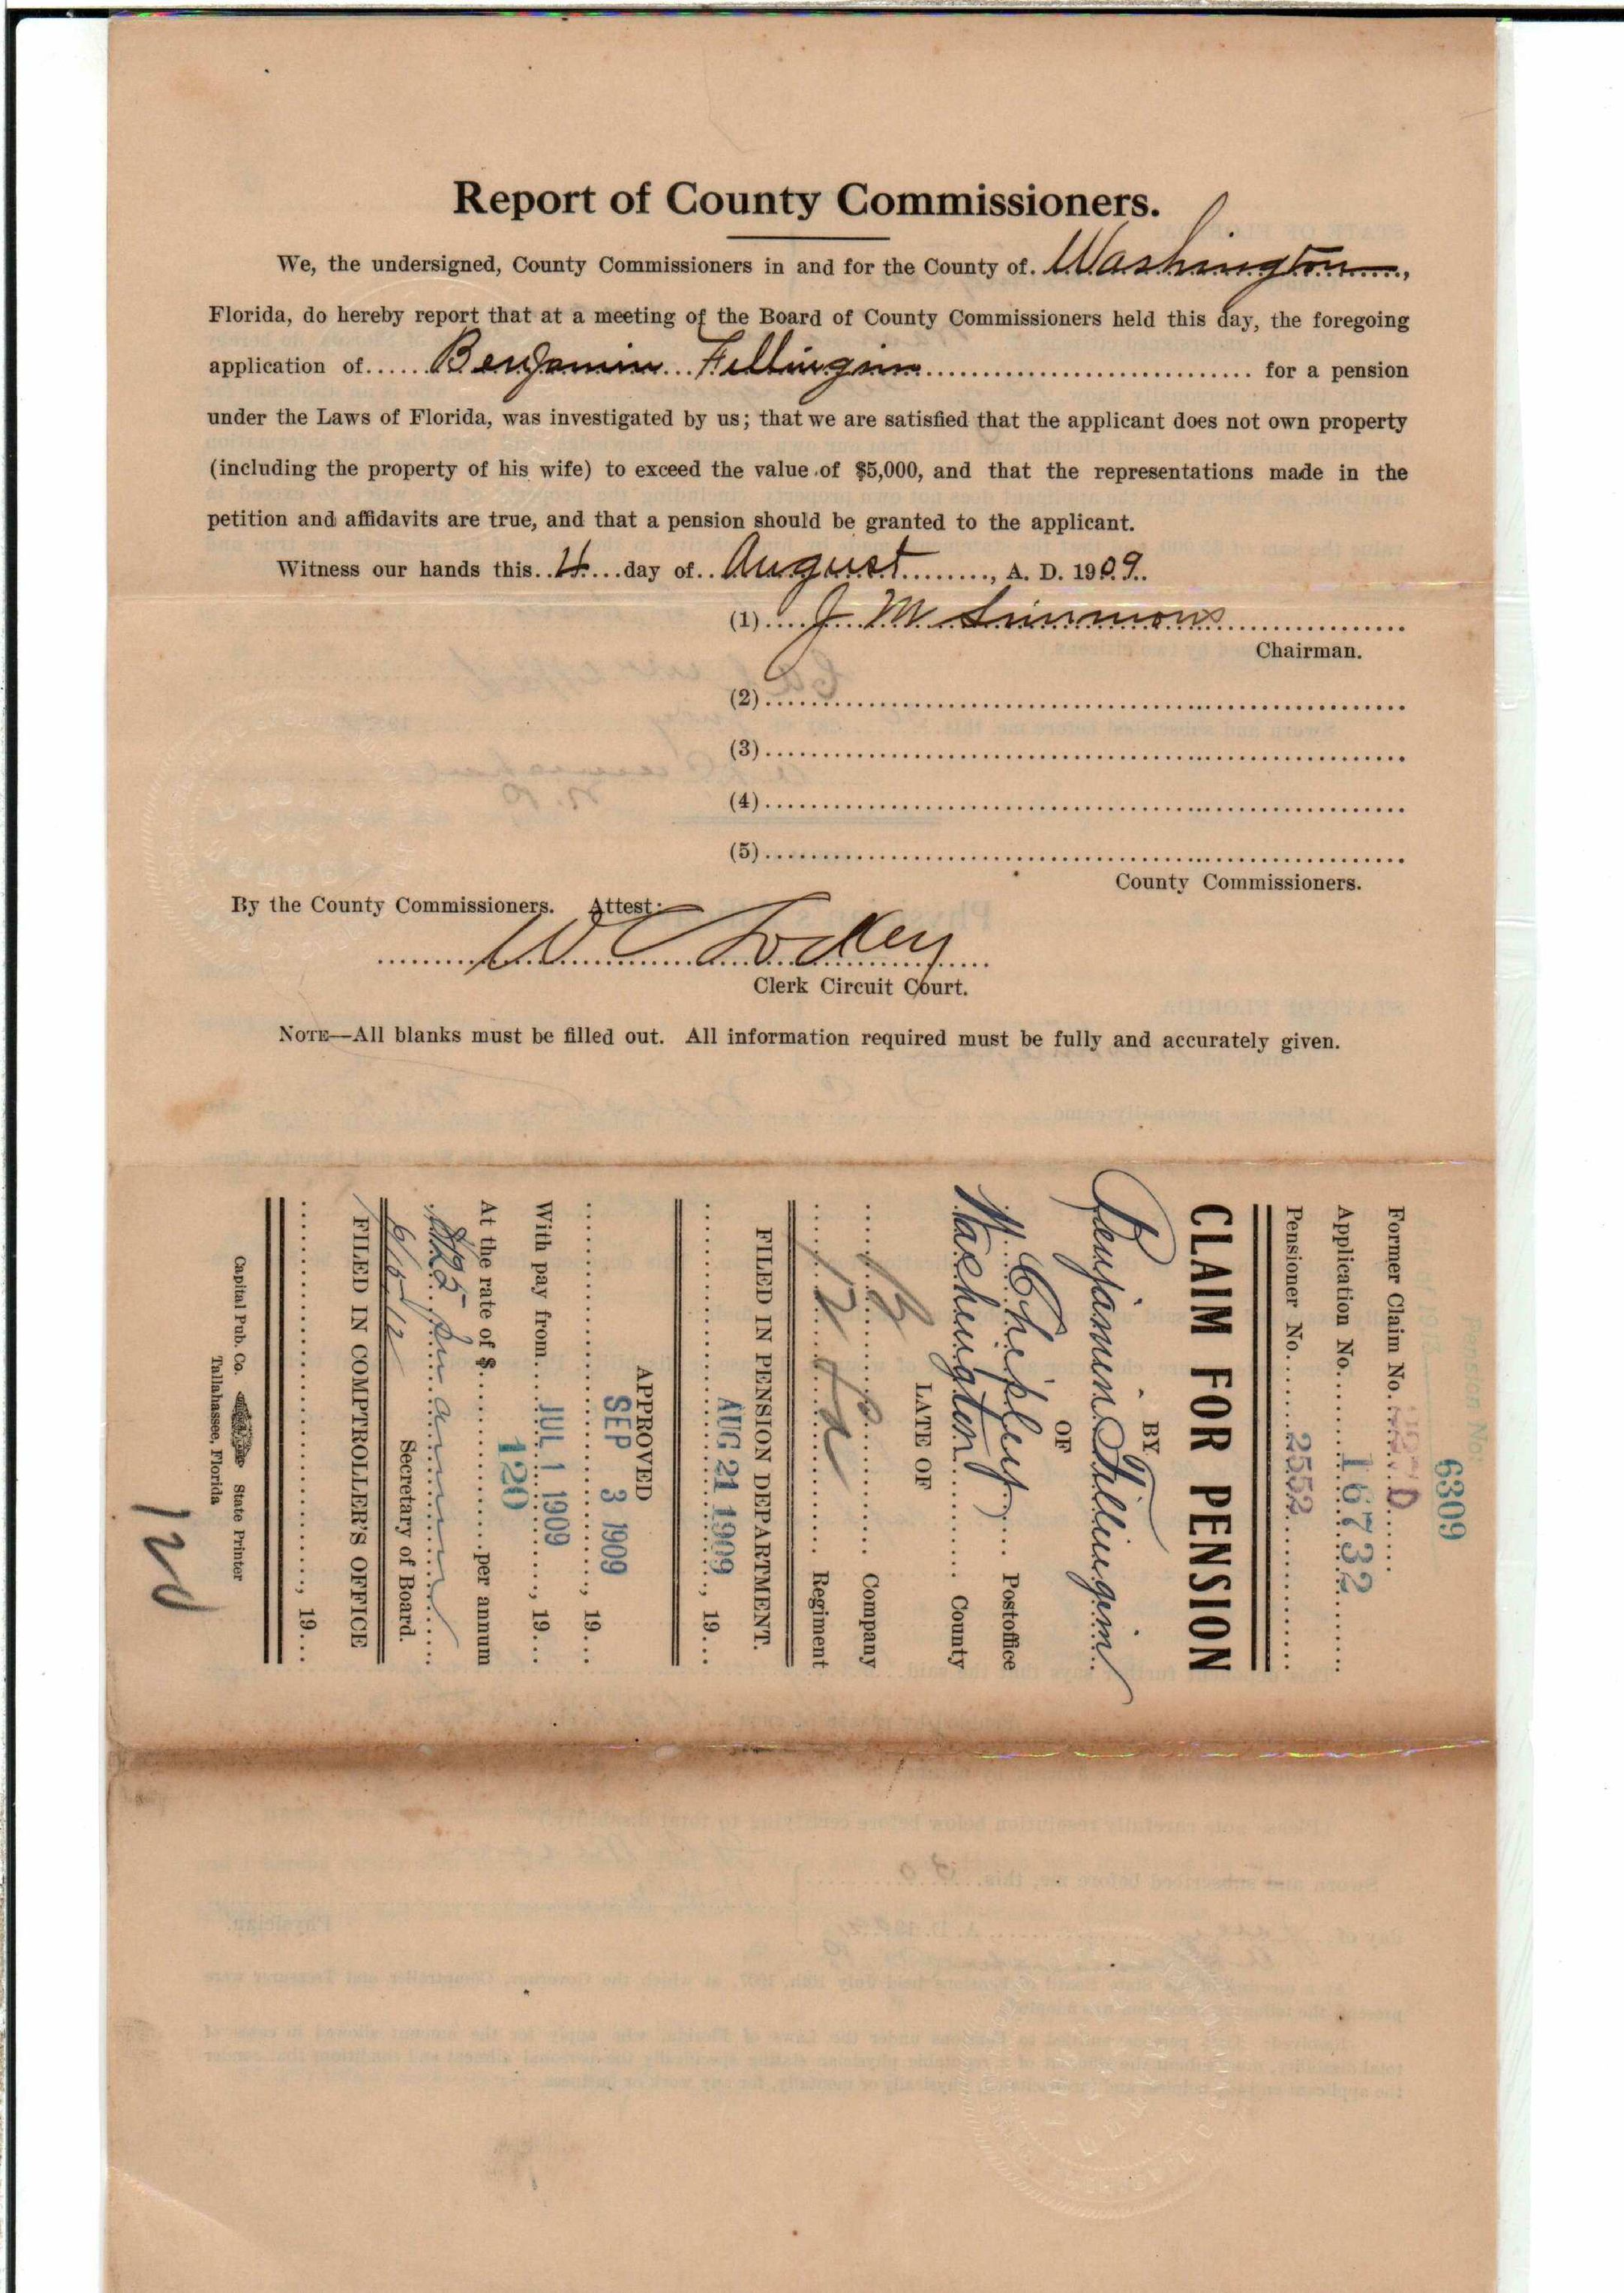 Report of County Commissioners.
We, the undersigned, County Commissioners in and for the County of. Washington.....,
Florida, do hereby report that at a meeting of the Board of County Commissioners held this day, the foregoing
application of......Benjamin...Fillingim.............................. for a pension
under the Laws of Florida, was investigated by us; that we are satisfied that the applicant does not own property
(including the property of his wife) to exceed the value of $5,000, and that the representations made in the
petition and affidavits are true, and that a pension should be granted to the applicant.
Witness our hands this..4....day of..August.........., A. D. 1909..
(1)....J. M Simmons....................
Chairman.
(2)............................................................
(3)............................................................
(4)............................................................
(5)............................................................
County Commissioners.
By the County Commissioners. Attest:
W C Lockey
Clerk Circuit Court.
NOTE—All blanks must be filled out. All information required must be fully and accurately given.
Pension No.
6309
Former Claim No.
D
Application No. 16732
Pensioner No. 2552
CLAIM FOR PENSION
BY
Benjamin Fillingim
OF
Chipley Postoffice
Washington County
LATE OF
B Co Company
12 Regiment
FILED IN PENSION DEPARTMENT.
AUG 21 1909, 19...
APPROVED
SEP 3 1909
, 19...
With pay from JUL 1 1909, 19...
120
At the rate of $..........per annum
$125 per annum
Secretary of Board.
FILED IN COMPTROLLER'S OFFICE
, 19...
Capital Pub. Co. State Printer
Tallahassee, Florida
120